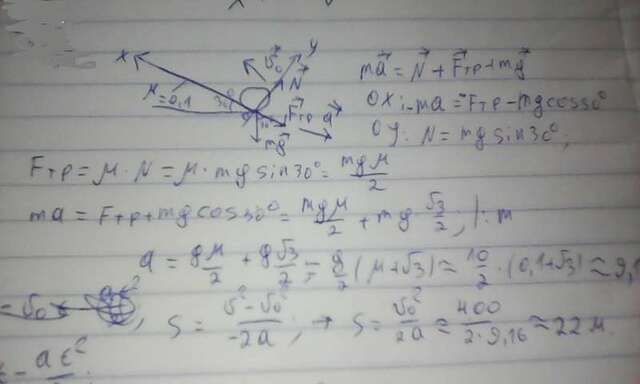 x y v⃗₀ N⃗
μ=0,1 30° F⃗тр a⃗
mg⃗
ma⃗ = N⃗ + F⃗тр + mg⃗
OX: -ma = -Fтр - mg cos30°
OY: N = mg sin30°;
Fтр = μ · N = μ · mg sin30° = mgμ/2
ma = Fтр + mg cos30° = mgμ/2 + mg √3/2; |: m
a = gμ/2 + g√3/2 = g/2 (μ+√3) ≈ 10/2 · (0,1+√3) ≈ 9,1
S = v² - v₀²/-2a, → S = v₀²/2a ≈ 400/2·9,16 ≈ 22 м.
at²